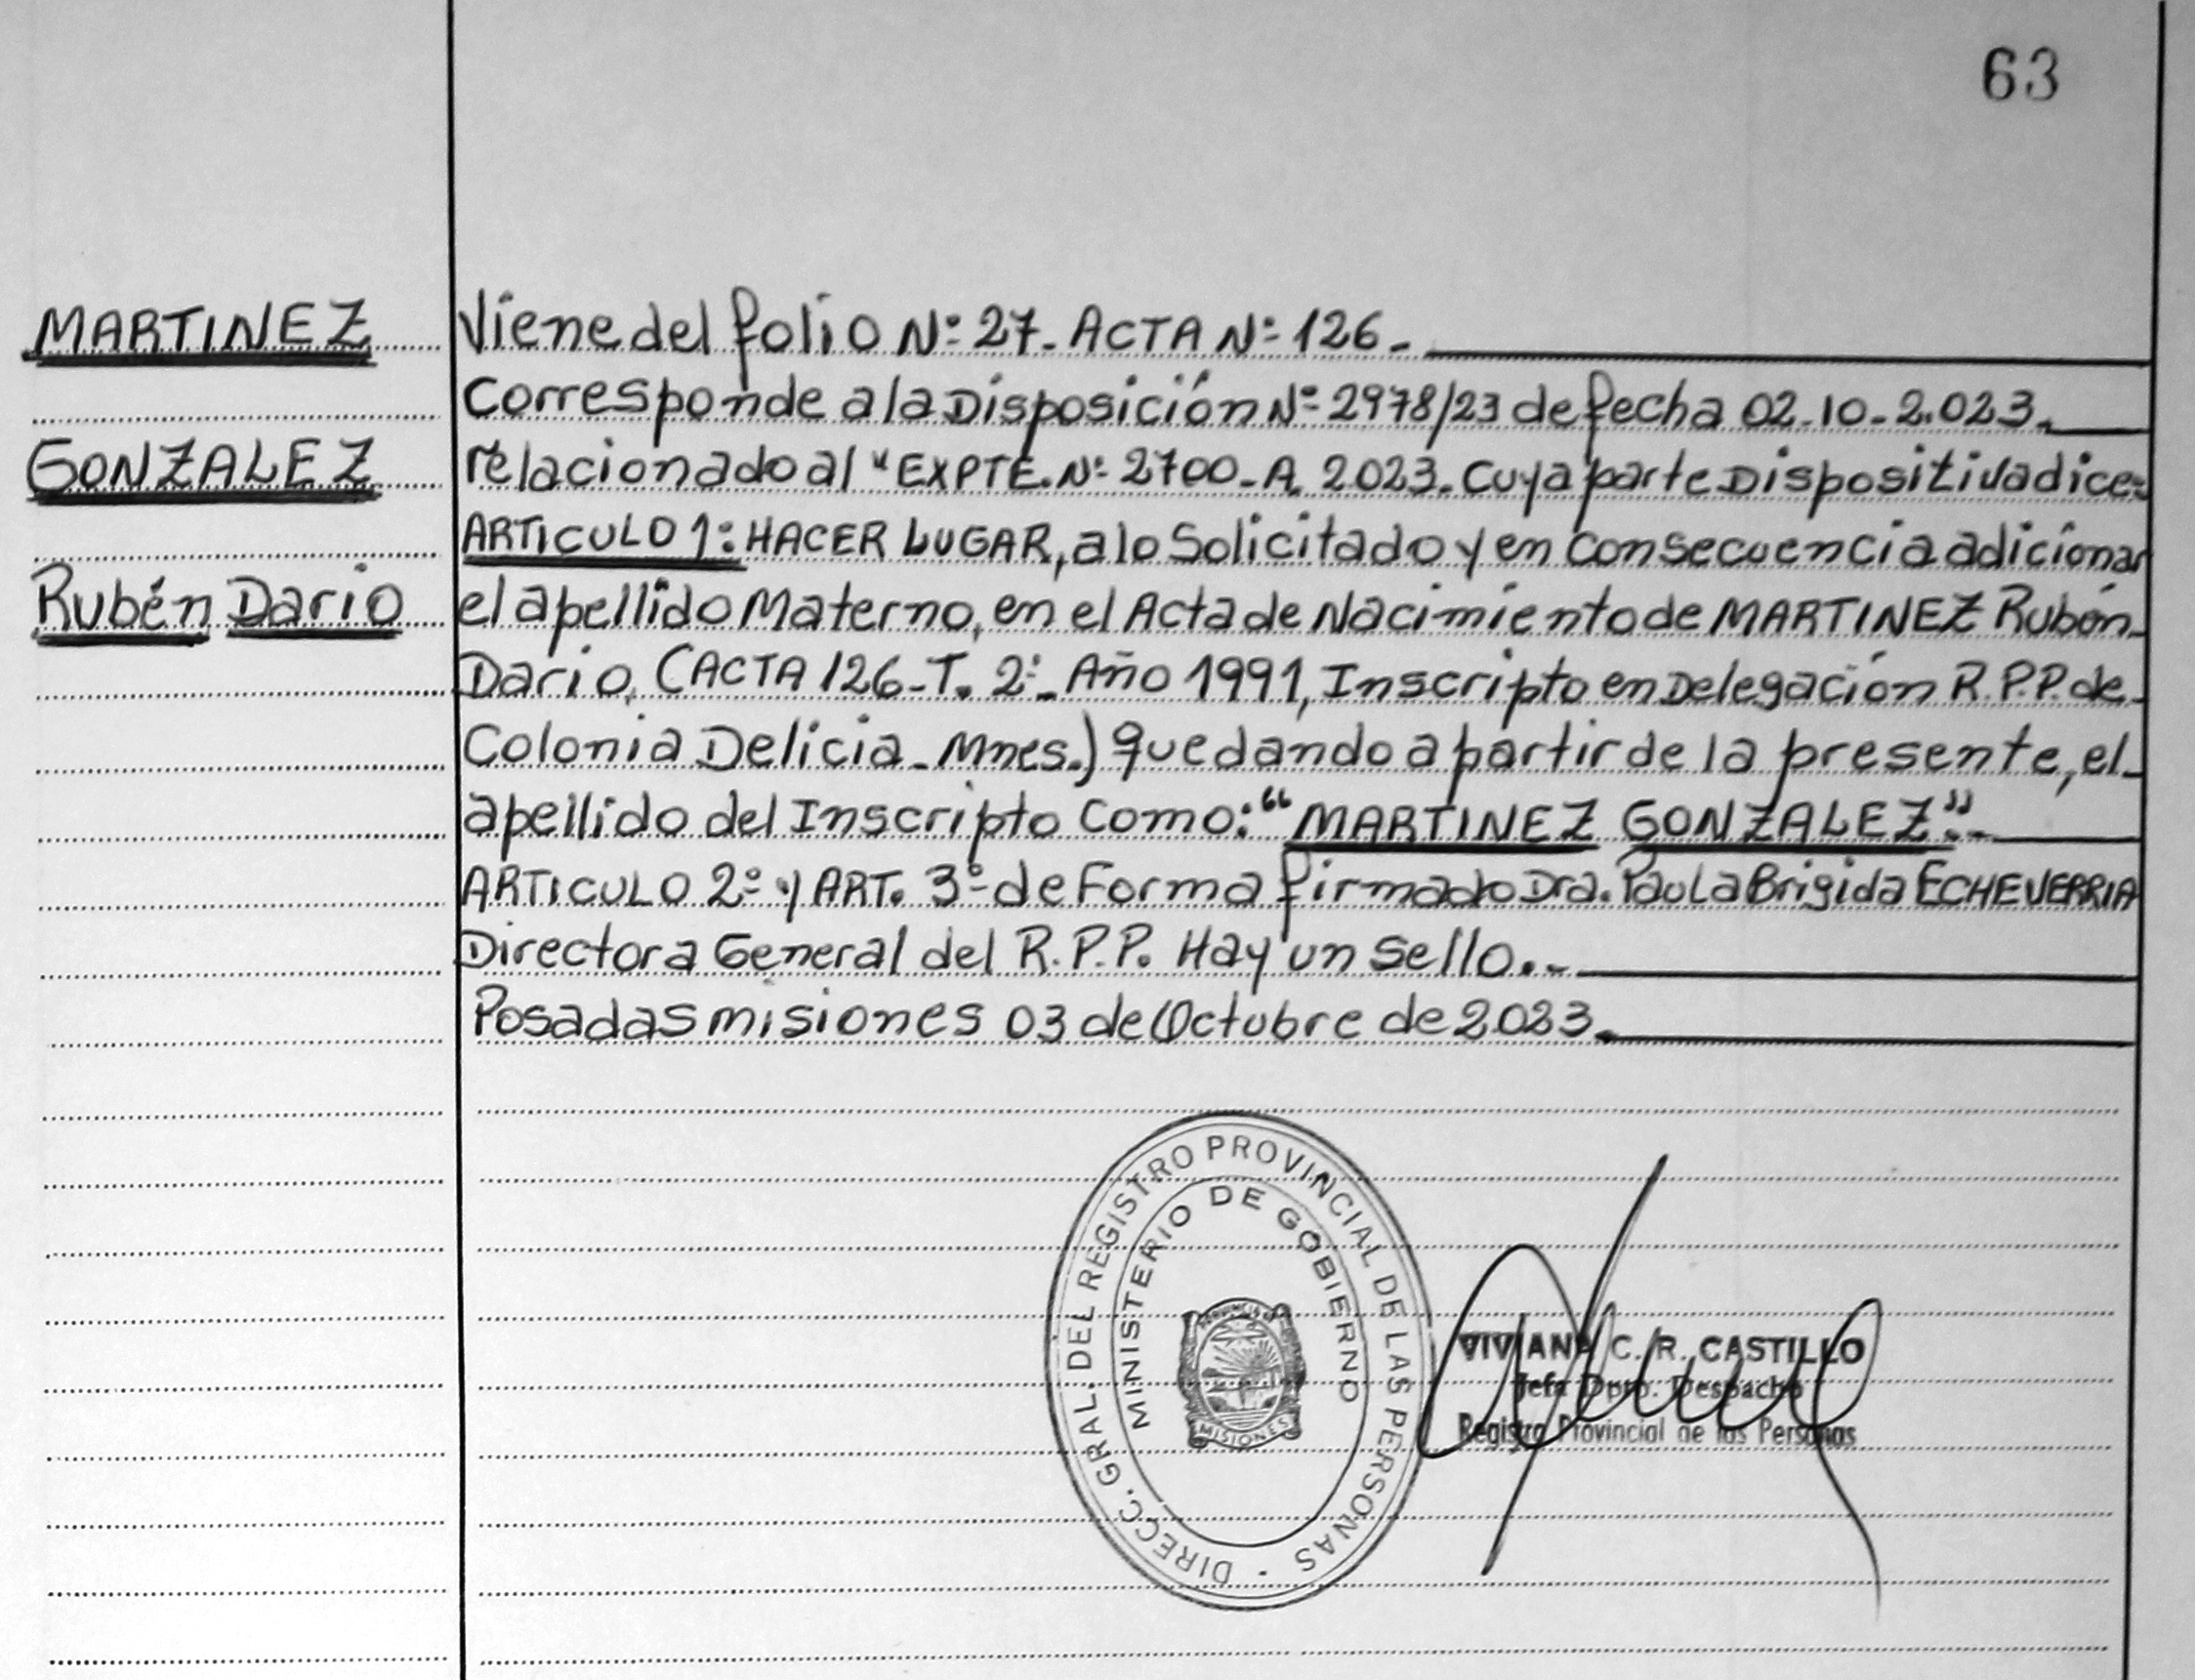 63
MARTINEZ
GONZALEZ
Rubén Dario
Viene del folio Nº 27. ACTA Nº 126.
Corresponde a la Disposición Nº 2978/23 de fecha 02-10-2.023.
relacionado al "EXPTE. Nº 2700-A. 2023. Cuya parte Dispositiva dice:
ARTICULO 1: HACER LUGAR, a lo Solicitado y en consecuencia adicionar
el apellido Materno, en el Acta de Nacimiento de MARTINEZ Rubén
Dario, (ACTA 126-T. 2º- Año 1991, Inscripto en Delegación R.P.P. de
Colonia Delicia - Mnes.) quedando a partir de la presente, el
apellido del Inscripto como: "MARTINEZ GONZALEZ".
ARTICULO 2º y ART. 3º de Forma firmado Dra. Paula Brigida ECHEVERRIA
Directora General del R.P.P. Hay un Sello..
Posadas misiones 03 de Octubre de 2023.
DIRECC. GRAL. DEL REGISTRO PROVINCIAL DE LAS PERSONAS
MINISTERIO DE GOBIERNO
PROVINCIA DE
MISIONES
VIVIANA C. R. CASTILLO
Jefa Dpto. Despacho
Registro Provincial de las Personas